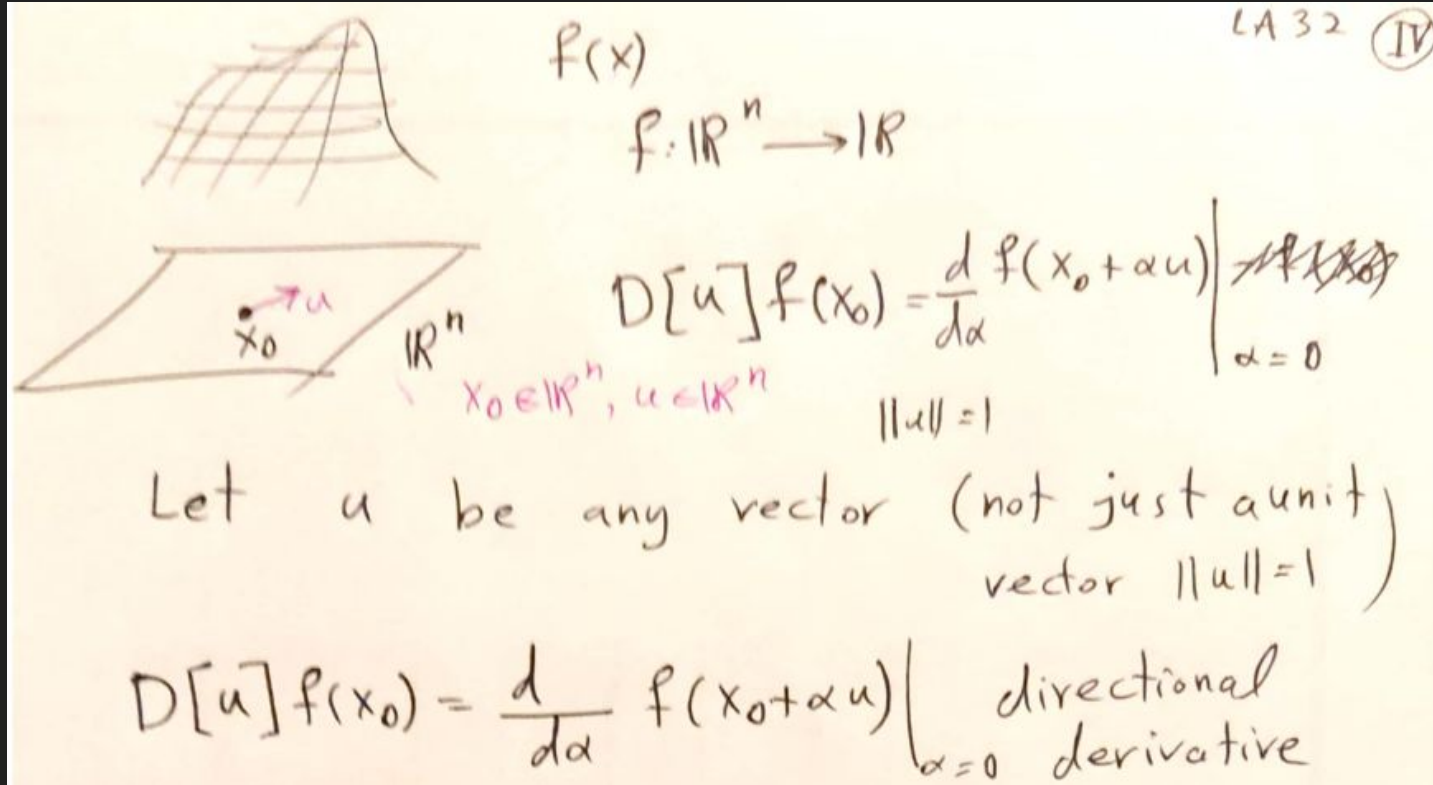 LA 32 IV
f(x)
f: ℝⁿ → ℝ
u
x₀
ℝⁿ
D[u] f(x₀) = d/dα f(x₀ + αu) |α = 0
x₀ ∈ ℝⁿ, u ∈ ℝⁿ
||u|| = 1
Let u be any vector (not just a unit
vector ||u|| = 1)
D[u] f(x₀) = d/dα f(x₀ + αu) |α = 0 directional
derivative